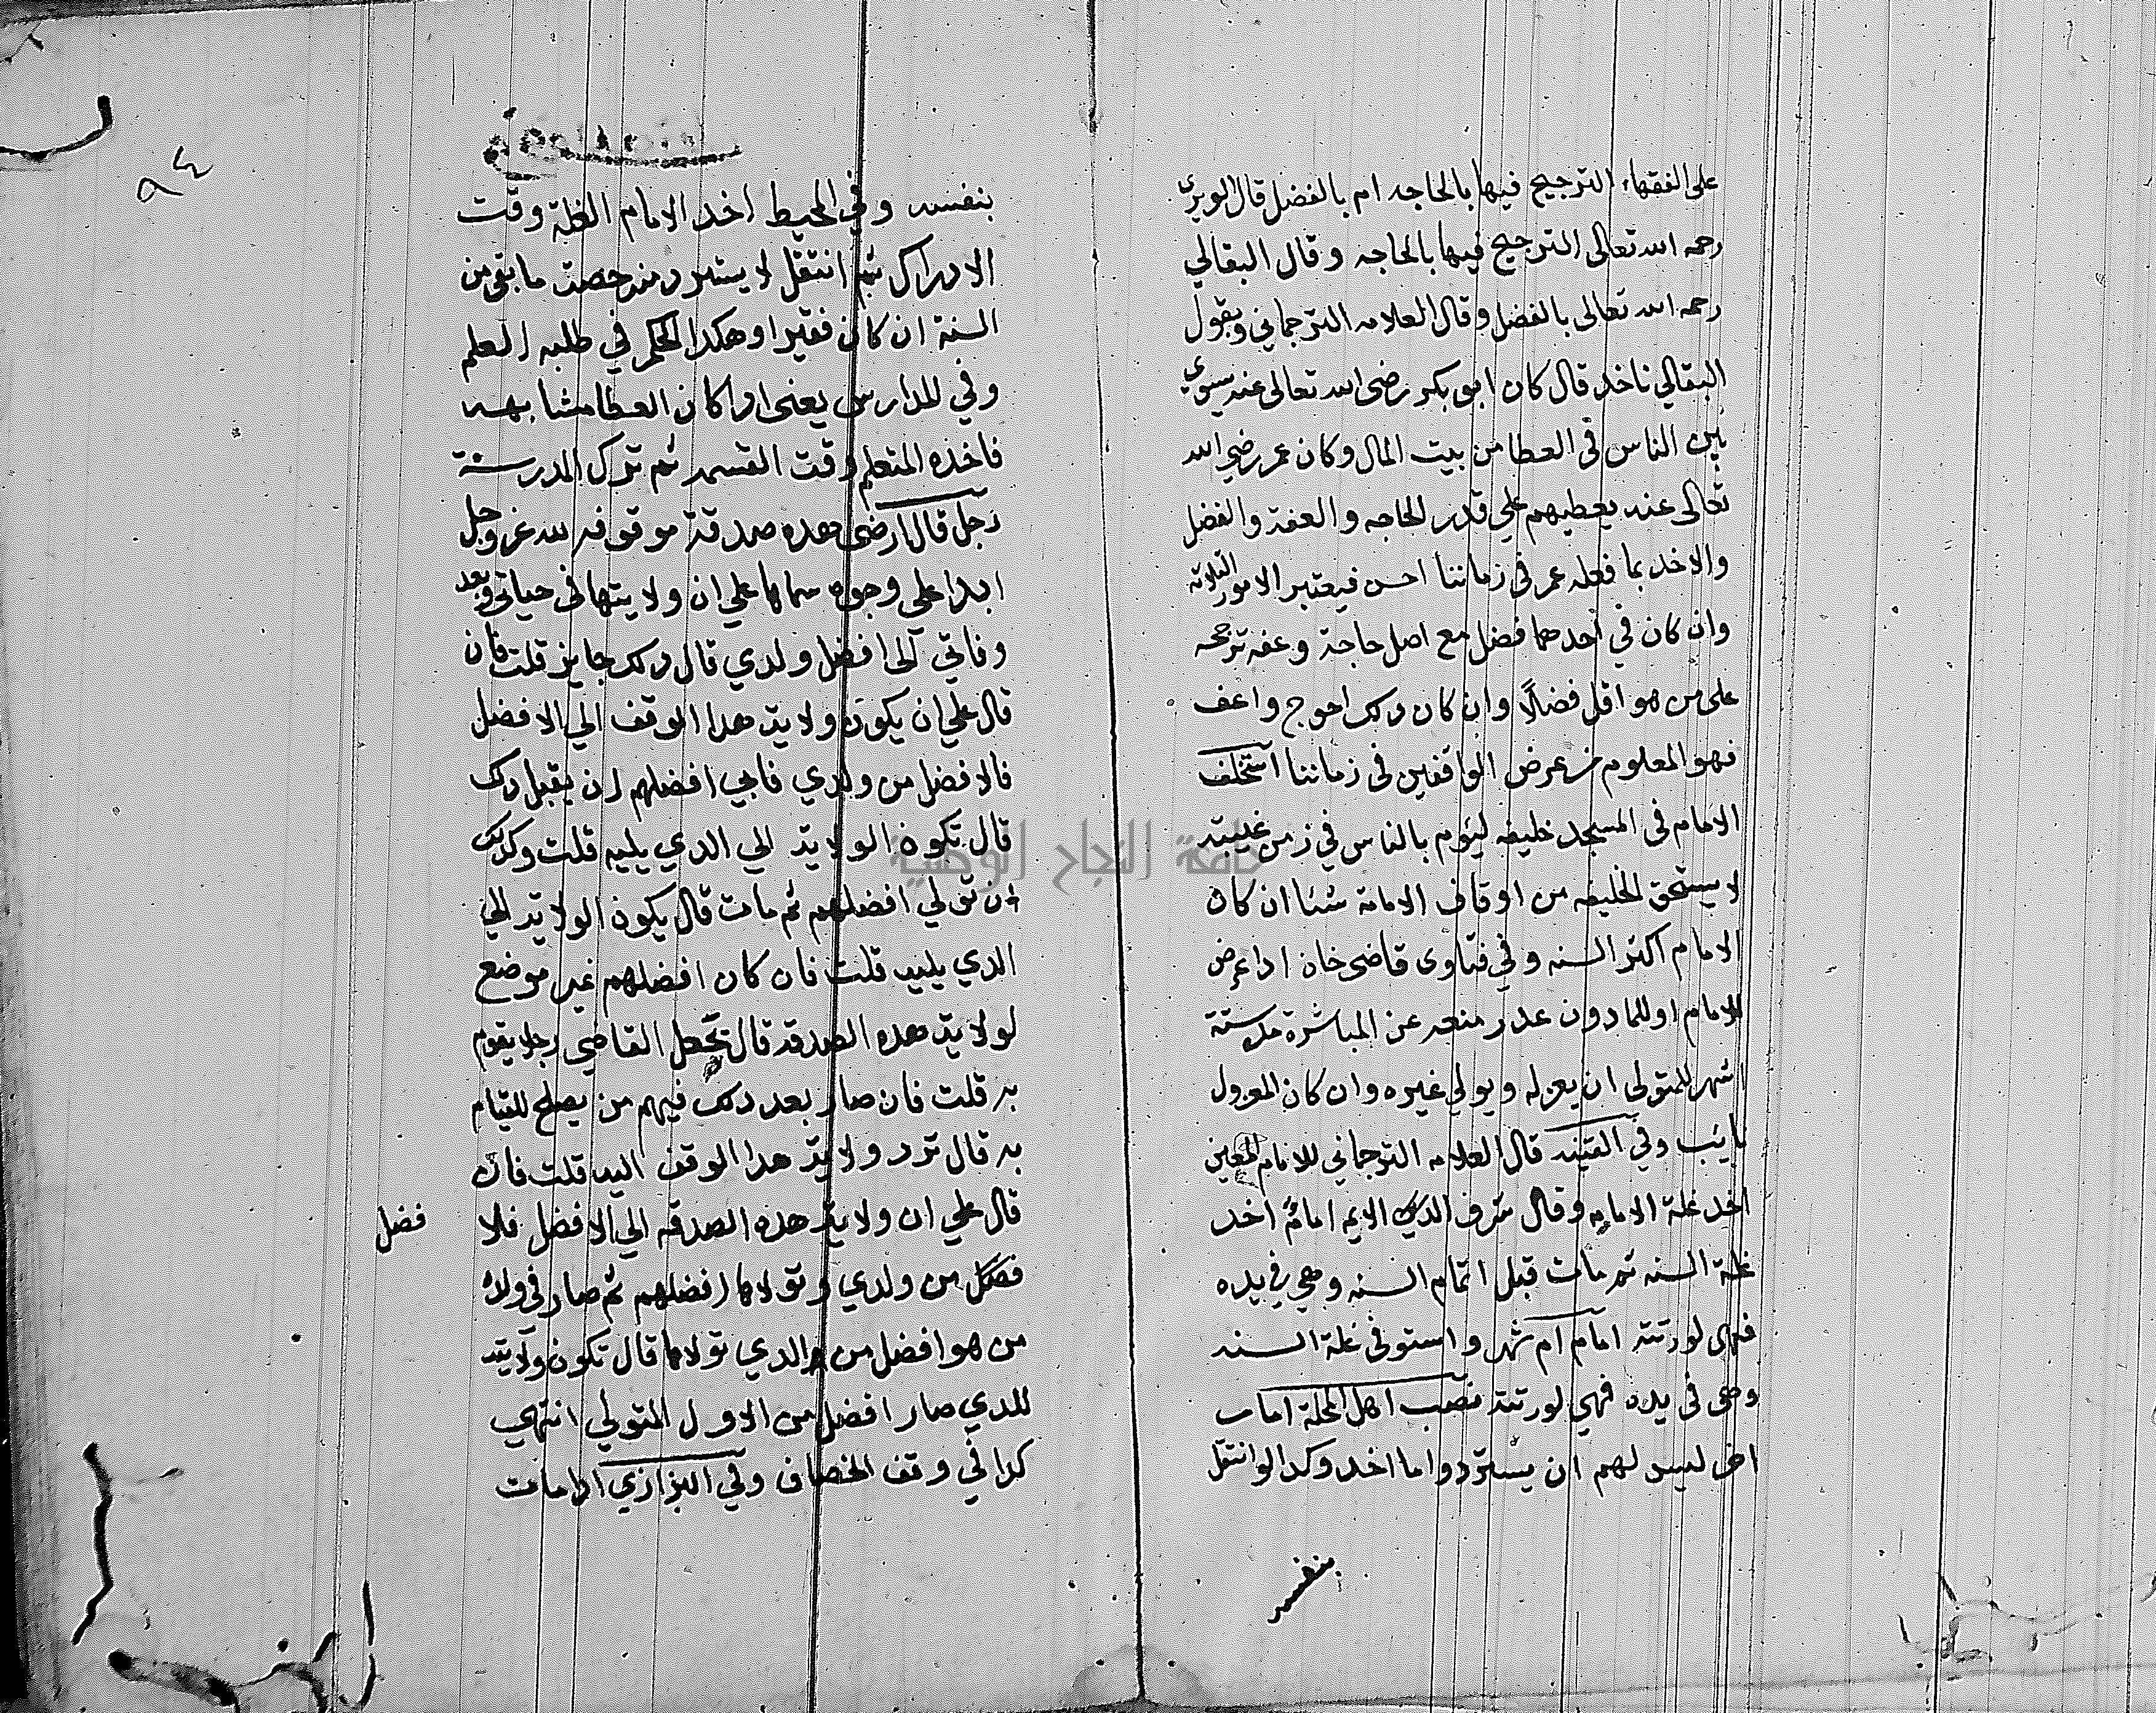 على الفقهاء الترجيح فيها بالحاجه ام بالفضل قال الوبري
رحمه الله تعالى الترجيح فيها بالحاجه وقال البقالي
رحمه الله تعالى بالفضل وقال العلامه الترجماني وبقول
البقالي ناخد قال كان ابو بكر رضى الله تعالى عنه يسوي
بين الناس فى العطا من بيت المال وكان عمر رضي الله
تعالى عنه يعطيهم على قدر الحاجه والعفة والفضل
والاخد بما فعله عمر فى زماننا احسن فيعتبر الامور الثلاثة
وان كان في احدهما فضل مع اصل حاجة وعفه ترجحه
على من هو اقل فضلًا وان كان دلك احوج واعف
فهو المعلوم من عرض الواقفين فى زماننا استخلف
الامام فى المسجد خليفه ليئوم بالناس في زمن غيبته
لا يستحق الخليفه من اوقاف الامامة شئا ان كان
الامام اكثر السنه وفي فتاوى قاضى خان ادا عرض
للامام او للمادون عدر منعه عن المباشرة مدة ستة
اشهر للمتولي ان يعزله ويولي غيره وان كان للمعزول
نايب وفي القنيه قال العلامه الترجماني للامام المعين
اخد غلة الامامه وقال شرف الايمه امام اخد
غلة السنه ثم مات قبل اتمام السنه وهي في يده
فهى لورثته امام ام شهر واستوفى غلة السنه
وهى فى يده فهي لورثته نصب اهل المحلة اماما
اخر ليس لهم ان يستردوا ما اخد وكدا لو انتقل
بنفسه
بنفسه وفي المحيط اخد الامام الغلة وقت
الادراك ثم انتقل لا يسترد منه حصة ما بقى من
السنة ان كان فقيرا وهكدا الحكم في طلبه العلم
وفي المدارس يعنى ادا كان العطا مشابهه
فاخذه المتعلم وقت القسمه ثم ترك المدرسة
رجل قال ارضى هده صدقة موقوفه لله عز وجل
ابدا على وجوه سماها على ان ولايتها فى حياتى وبعد
وفاتي الى افضل ولدي قال دلك جايز قلت فان
قال على ان يكون ولاية هدا الوقف الي الافضل
فالافضل من ولدي فابي افضلهم ان يقبل دلك
قال تكون الولاية الي الدي يليه قلت وكدلك
ان تولي افضلهم ثم مات قال يكون الولاية الي
الدي يليه قلت فان كان افضلهم غير موضع
لولاية هده الصدقه قال يجعل القاضي رجلا يقوم
به قلت فان صار بعد دلك فيهم من يصلح للقيام
به قال ترد ولاية هدا الوقف اليه قلت فان
قال على ان ولاية هده الصدقه الي الافضل فلا
فضل
فضل من ولدي وتولاها افضلهم ثم صار في ولده
من هو افضل من الدي تولاها قال تكون ولايته
للدي صار افضل من الاول المتولي انتهي
كدا في وقف الخصاف وفي البزازي ادا مات
٩٤
جامعة النجاح الوطنية